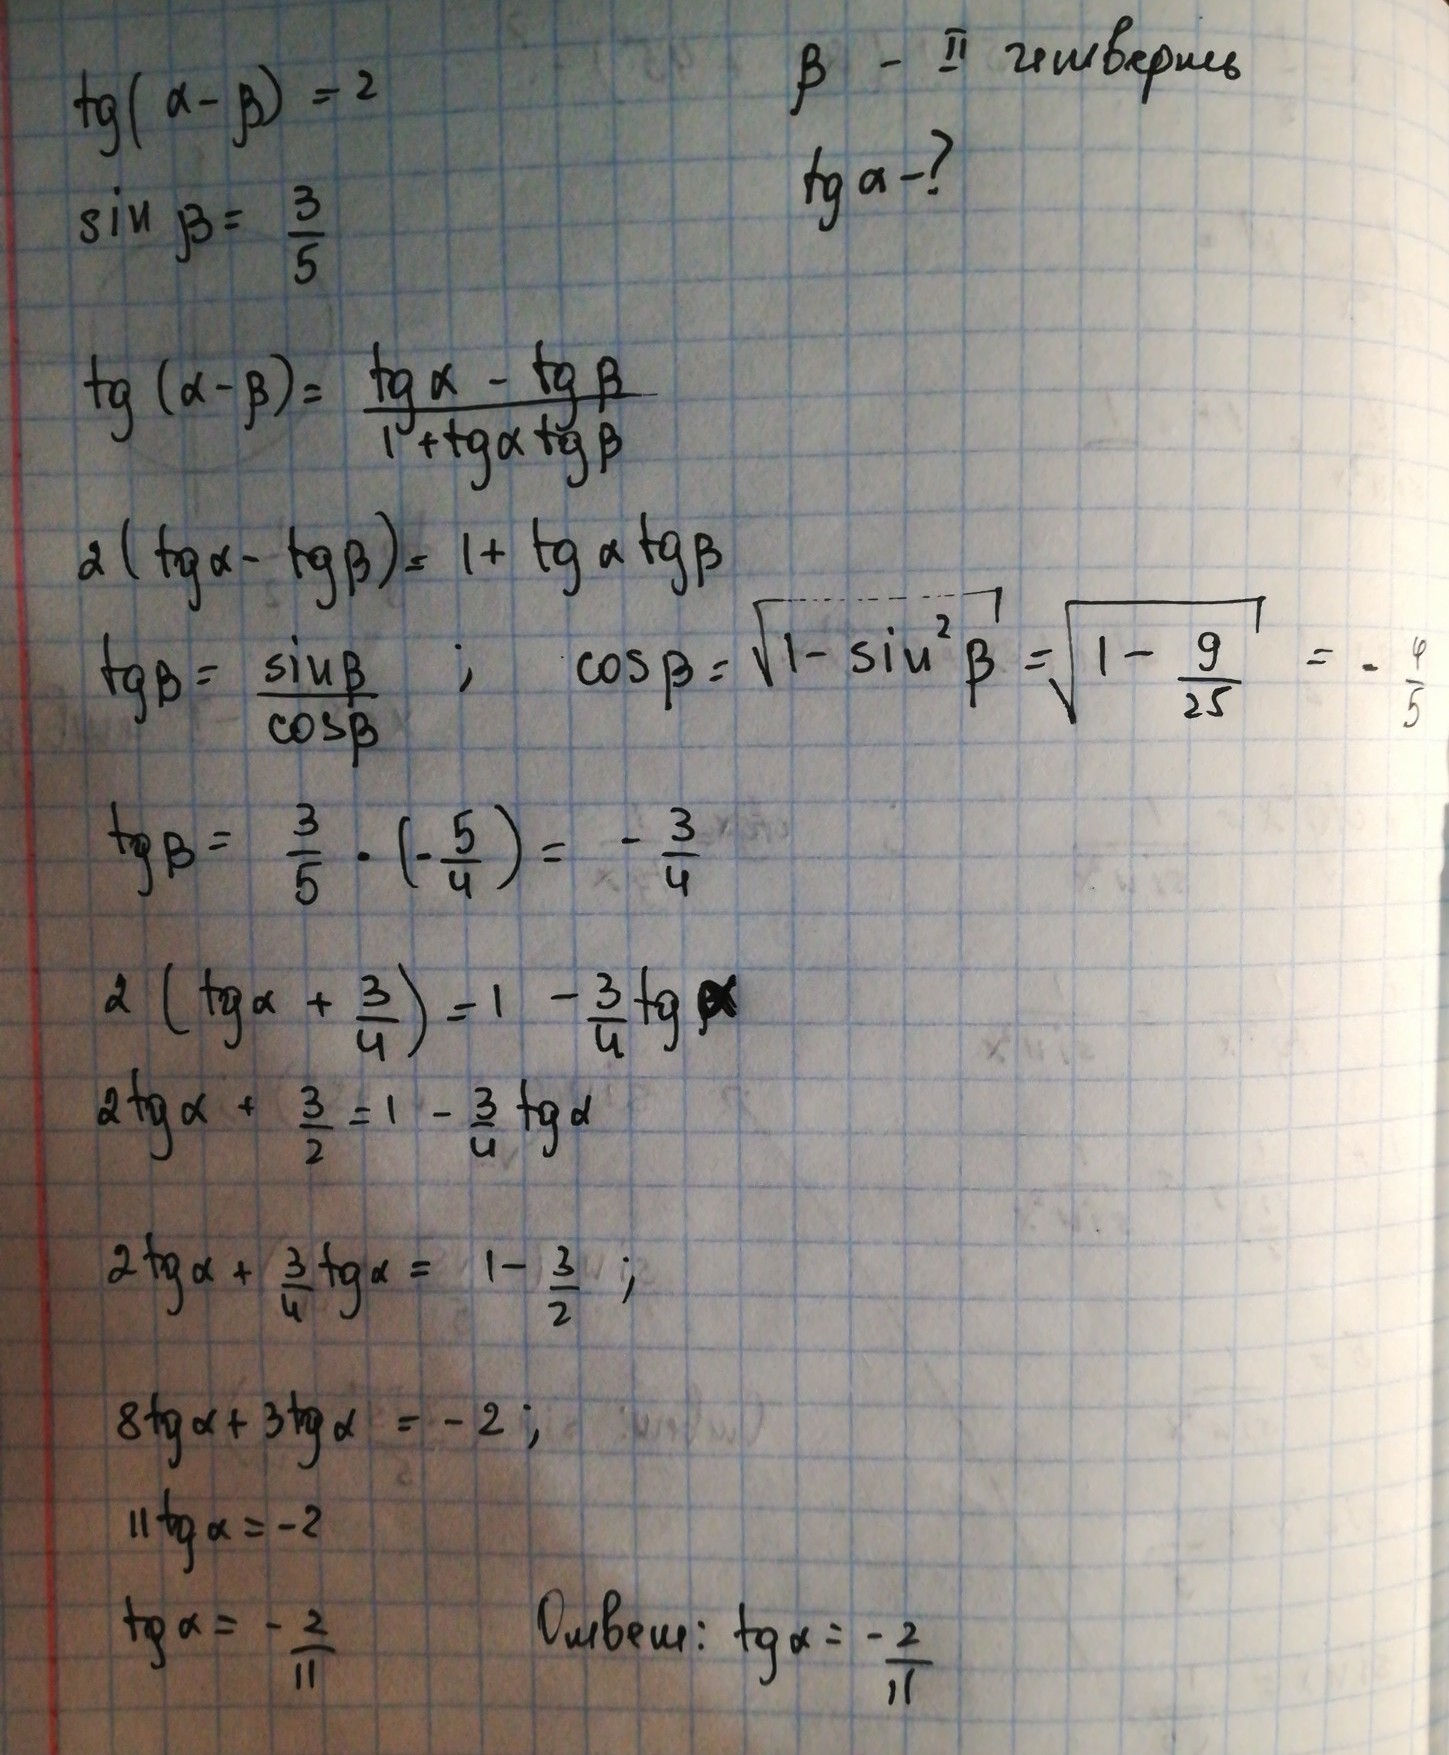 tg(α-β) = 2
β - II четверть
sin β = 3/5
tg α -?
tg (α-β) = (tg α - tg β)/(1 + tg α tg β)
2(tg α - tg β) = 1 + tg α tg β
tg β = sin β/cos β ; cos β = √(1 - sin² β) = √(1 - 9/25) = - 4/5
tg β = 3/5 · (-5/4) = - 3/4
2 (tg α + 3/4) = 1 - 3/4 tg α
2 tg α + 3/2 = 1 - 3/4 tg α
2 tg α + 3/4 tg α = 1 - 3/2 ;
8 tg α + 3 tg α = - 2 ;
11 tg α = -2
tg α = - 2/11 Ответ: tg α = - 2/11